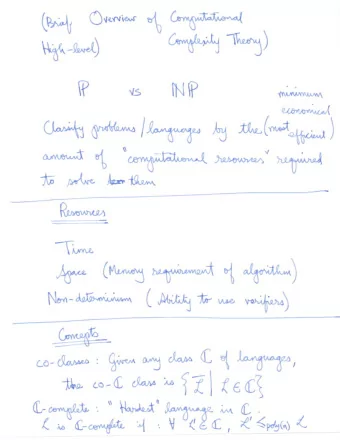 (Brief Overview of Computational
High-level) Complexity Theory)
ℙ vs ℕℙ minimum
economical
Classify problems/languages by the (most efficient)
amount of "computational resources" required
to solve them
Resources
Time
Space (Memory requirement of algorithm)
Non-determinism (Ability to use verifiers)
Concepts
co-classes: Given any class ℂ of languages,
the co-ℂ class is {L̅ | L ∈ ℂ}
ℂ-complete: "Hardest" language in ℂ.
L is ℂ-complete if: ∀ L' ∈ ℂ, L' ≤poly(n) L